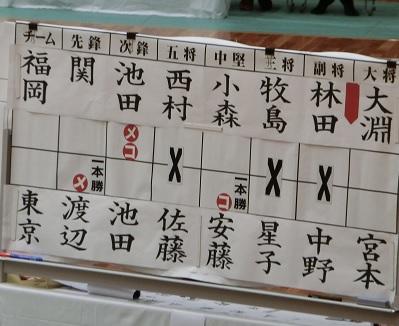 チーム 先鋒 次鋒 五将 中堅 三将 副将 大将
福岡 関 池田 西村 小森 牧島 林田 大淵
メコ
メ 一本勝 X コ 一本勝 X X
東京 渡辺 池田 佐藤 安藤 星子 中野 宮本